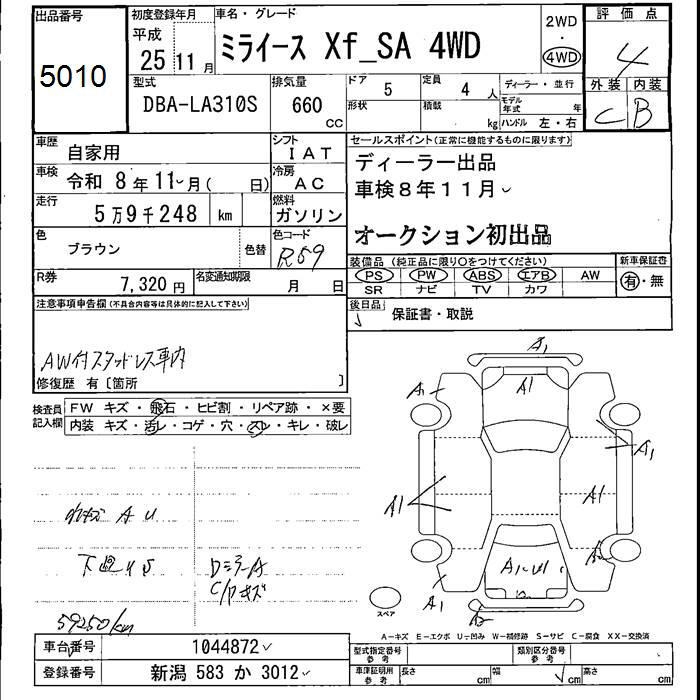 出品番号
5010
初度登録年月
平成
25 11 月
車名・グレード
ミライース Xf_SA 4WD
2WD
・
4WD
評価点
4
外装 内装
C B
型式
DBA-LA310S
排気量
660
CC
ドア
5
定員
4 人
ディーラー・並行
形状
積載
kg
モデル年式
年
ハンドル 左・右
車歴
自家用
シフト
IAT
車検
令和 8 年 11 月 ( 日)
冷房
AC
走行
5万9千248 km
燃料
ガソリン
色
ブラウン
色替
色コード
R59
R券
7,320 円
名変通知期限
月 日
セールスポイント(正常に機能するものに限ります)
ディーラー出品
車検8年11月
オークション初出品
装備品 (純正品に限り○をつけてください)
PS PW ABS エアB AW
SR ナビ TV カワ
新車保証書
有・無
後日品
保証書・取説
注意事項申告欄(不具合内容等は具体的に記入して下さい)
AW付スタッドレス車内
修復歴 有〔箇所 〕
検査員
記入欄
FW キズ・飛石・ヒビ割・リペア跡・×要
内装 キズ・汚レ・コゲ・穴・スレ・キレ・破レ
A1
A1
A1
A1
A1
A1
A1
スペア
59250km
A-キズ E-エクボ U-凹み W-補修跡 S-サビ C-腐食 XX-交換済
車台番号
1044872
登録番号
新潟 583 か 3012
型式指定番号
参考
類別区分番号
参考
車庫証明用
参考
長さ cm 幅 cm 高さ cm